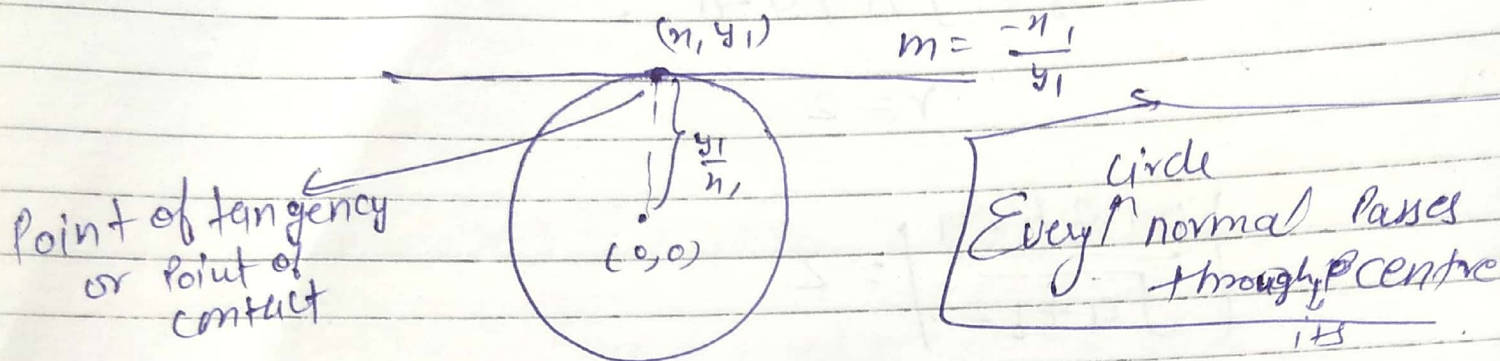 (x, y₁)
m = -x₁/y₁
y₁/x₁
(0,0)
Point of tangency
or Point of
contact
circle
Every normal Passes
through centre
its